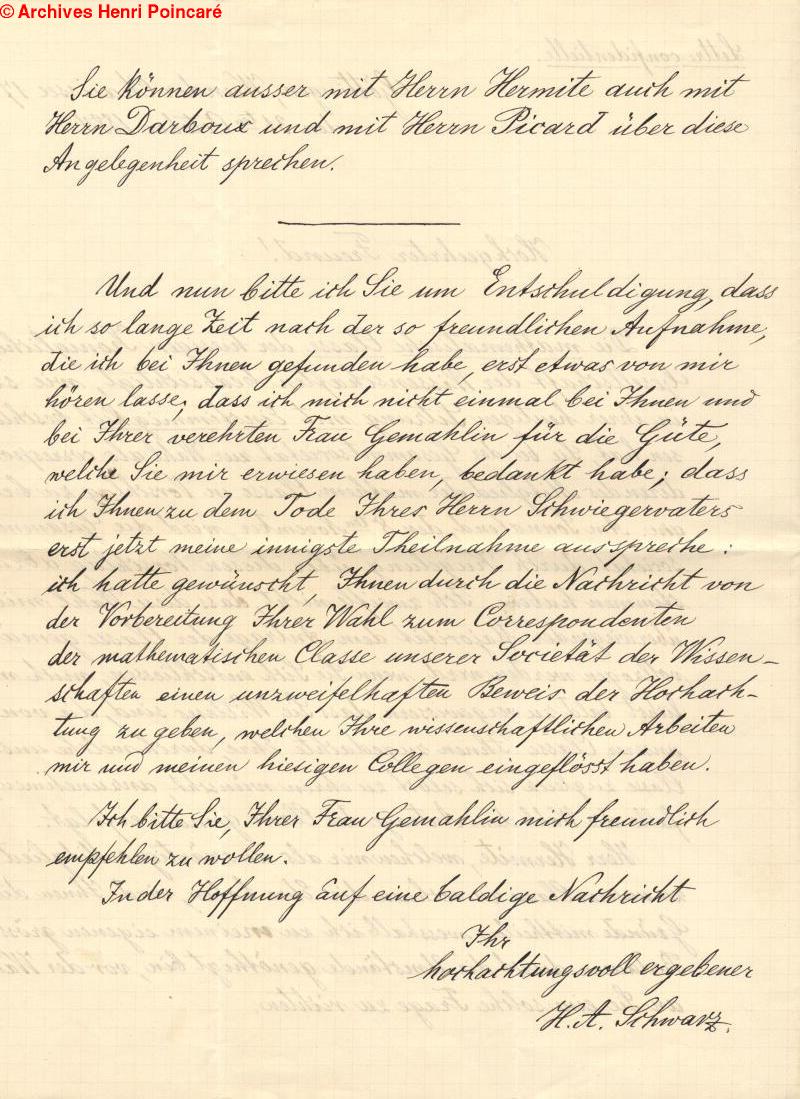 © Archives Henri Poincaré
Sie können ausser mit Herrn Hermite auch mit
Herrn Darboux und mit Herrn Picard über diese
Angelegenheit sprechen.
Und nun bitte ich Sie um Entschuldigung, dass
ich so lange Zeit nach der so freundlichen Aufnahme,
die ich bei Ihnen gefunden habe, erst etwas von mir
hören lasse; dass ich mich nicht einmal bei Ihnen und
bei Ihrer verehrten Frau Gemahlin für die Güte,
welche Sie mir erwiesen haben, bedankt habe; dass
ich Ihnen zu dem Tode Ihres Herrn Schwiegervaters
erst jetzt meine innigste Theilnahme ausspreche:
ich hatte gewünscht, Ihnen durch die Nachricht von
der Vorbereitung Ihrer Wahl zum Correspondenten
der mathematischen Classe unserer Societät der Wissen-
schaften einen unzweifelhaften Beweis der Hochach-
tung zu geben, welchen Ihre wissenschaftlichen Arbeiten
mir und meinen hiesigen Collegen eingeflösst haben.
Ich bitte Sie, Ihrer Frau Gemahlin mich freundlich
empfehlen zu wollen.
In der Hoffnung auf eine baldige Nachricht
Ihr
hochachtungsvoll ergebener
H. A. Schwarz.